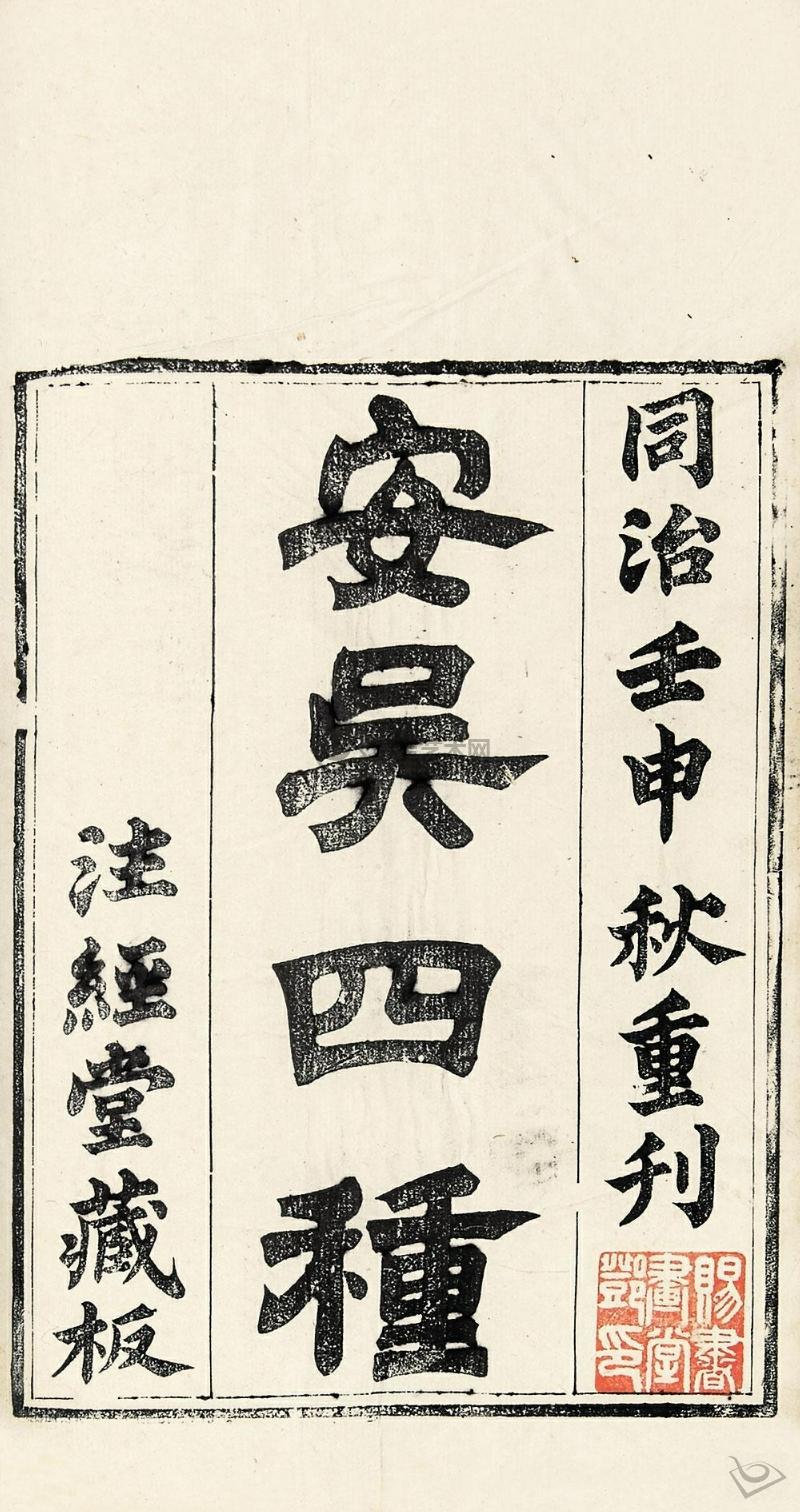 同治壬申秋重刊
安吳四種
注經堂藏板